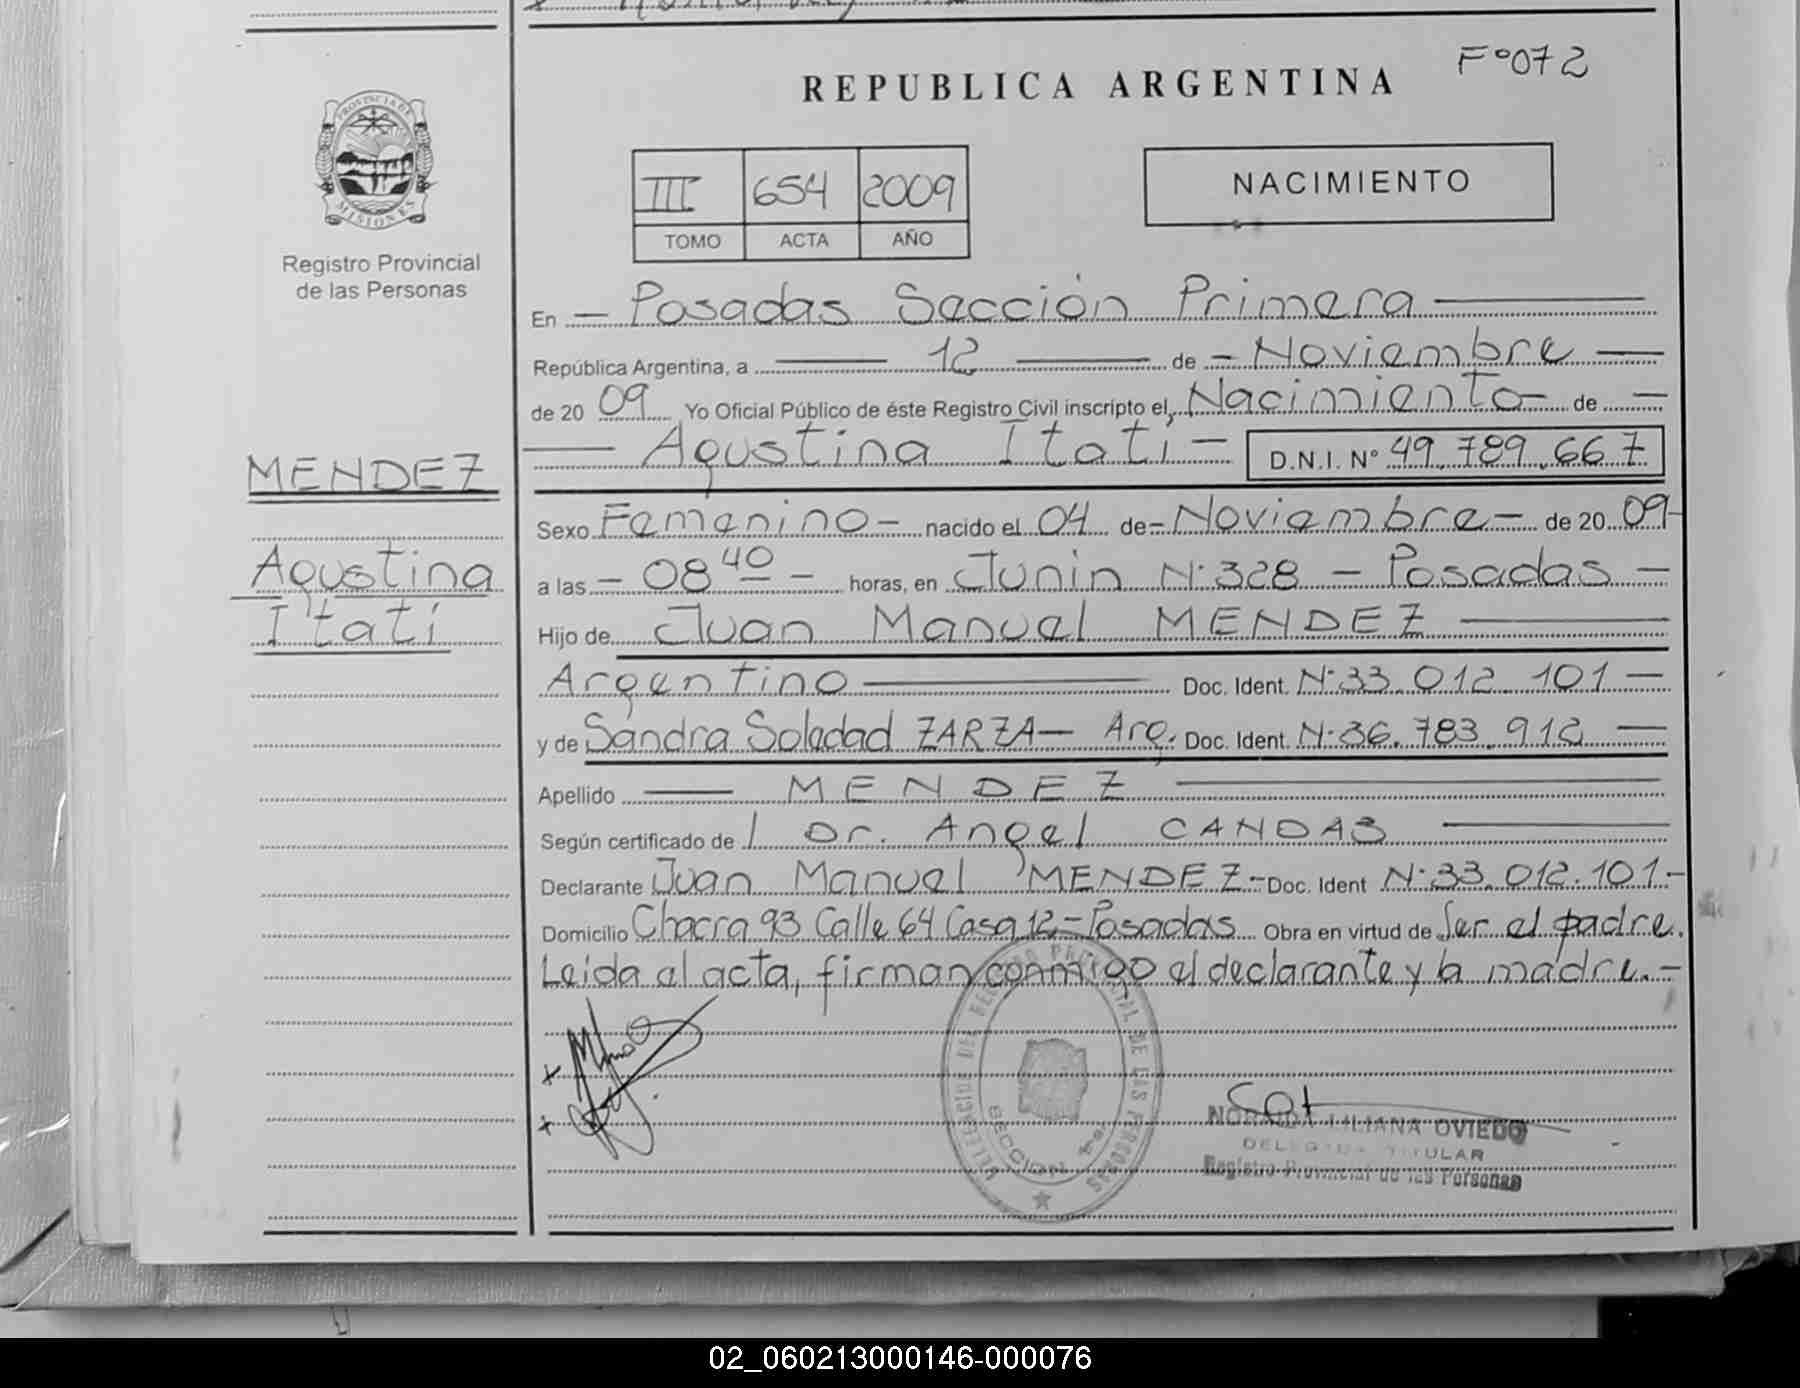 F° 072
REPUBLICA ARGENTINA
PROVINCIA DE
MISIONES
Registro Provincial
de las Personas
III 654 2009
TOMO ACTA AÑO
NACIMIENTO
En - Posadas Sección Primera
República Argentina, a 12 de - Noviembre
de 20 09 Yo Oficial Público de éste Registro Civil inscripto el, Nacimiento - de -
Agustina Itatí - D.N.I. N° 49.789.667
MENDEZ
Agustina
Itatí
Sexo Femenino - nacido el 04 de - Noviembre - de 20 09-
a las - 08 40 - horas, en Junin N° 328 - Posadas -
Hijo de Juan Manuel MENDEZ
Argentino Doc. Ident. N° 33.012.101 -
y de Sandra Soledad ZARZA - Arg. Doc. Ident. N° 36.783.912 -
Apellido MENDEZ
Según certificado de Dr. Angel CANDAS
Declarante Juan Manuel MENDEZ - Doc. Ident N° 33.012.101.-
Domicilio Chacra 93 Calle 64 Casa 12 - Posadas Obra en virtud de Ser el padre.
Leida el acta, firman conmigo el declarante y la madre.-
DELEGACION DEL REGISTRO PROVINCIAL DE LAS PERSONAS
SECCION 1ra.
NORAIDA LILIANA OVIEDO
DELEGADA TITULAR
Registro Provincial de las Personas
02_060213000146-000076